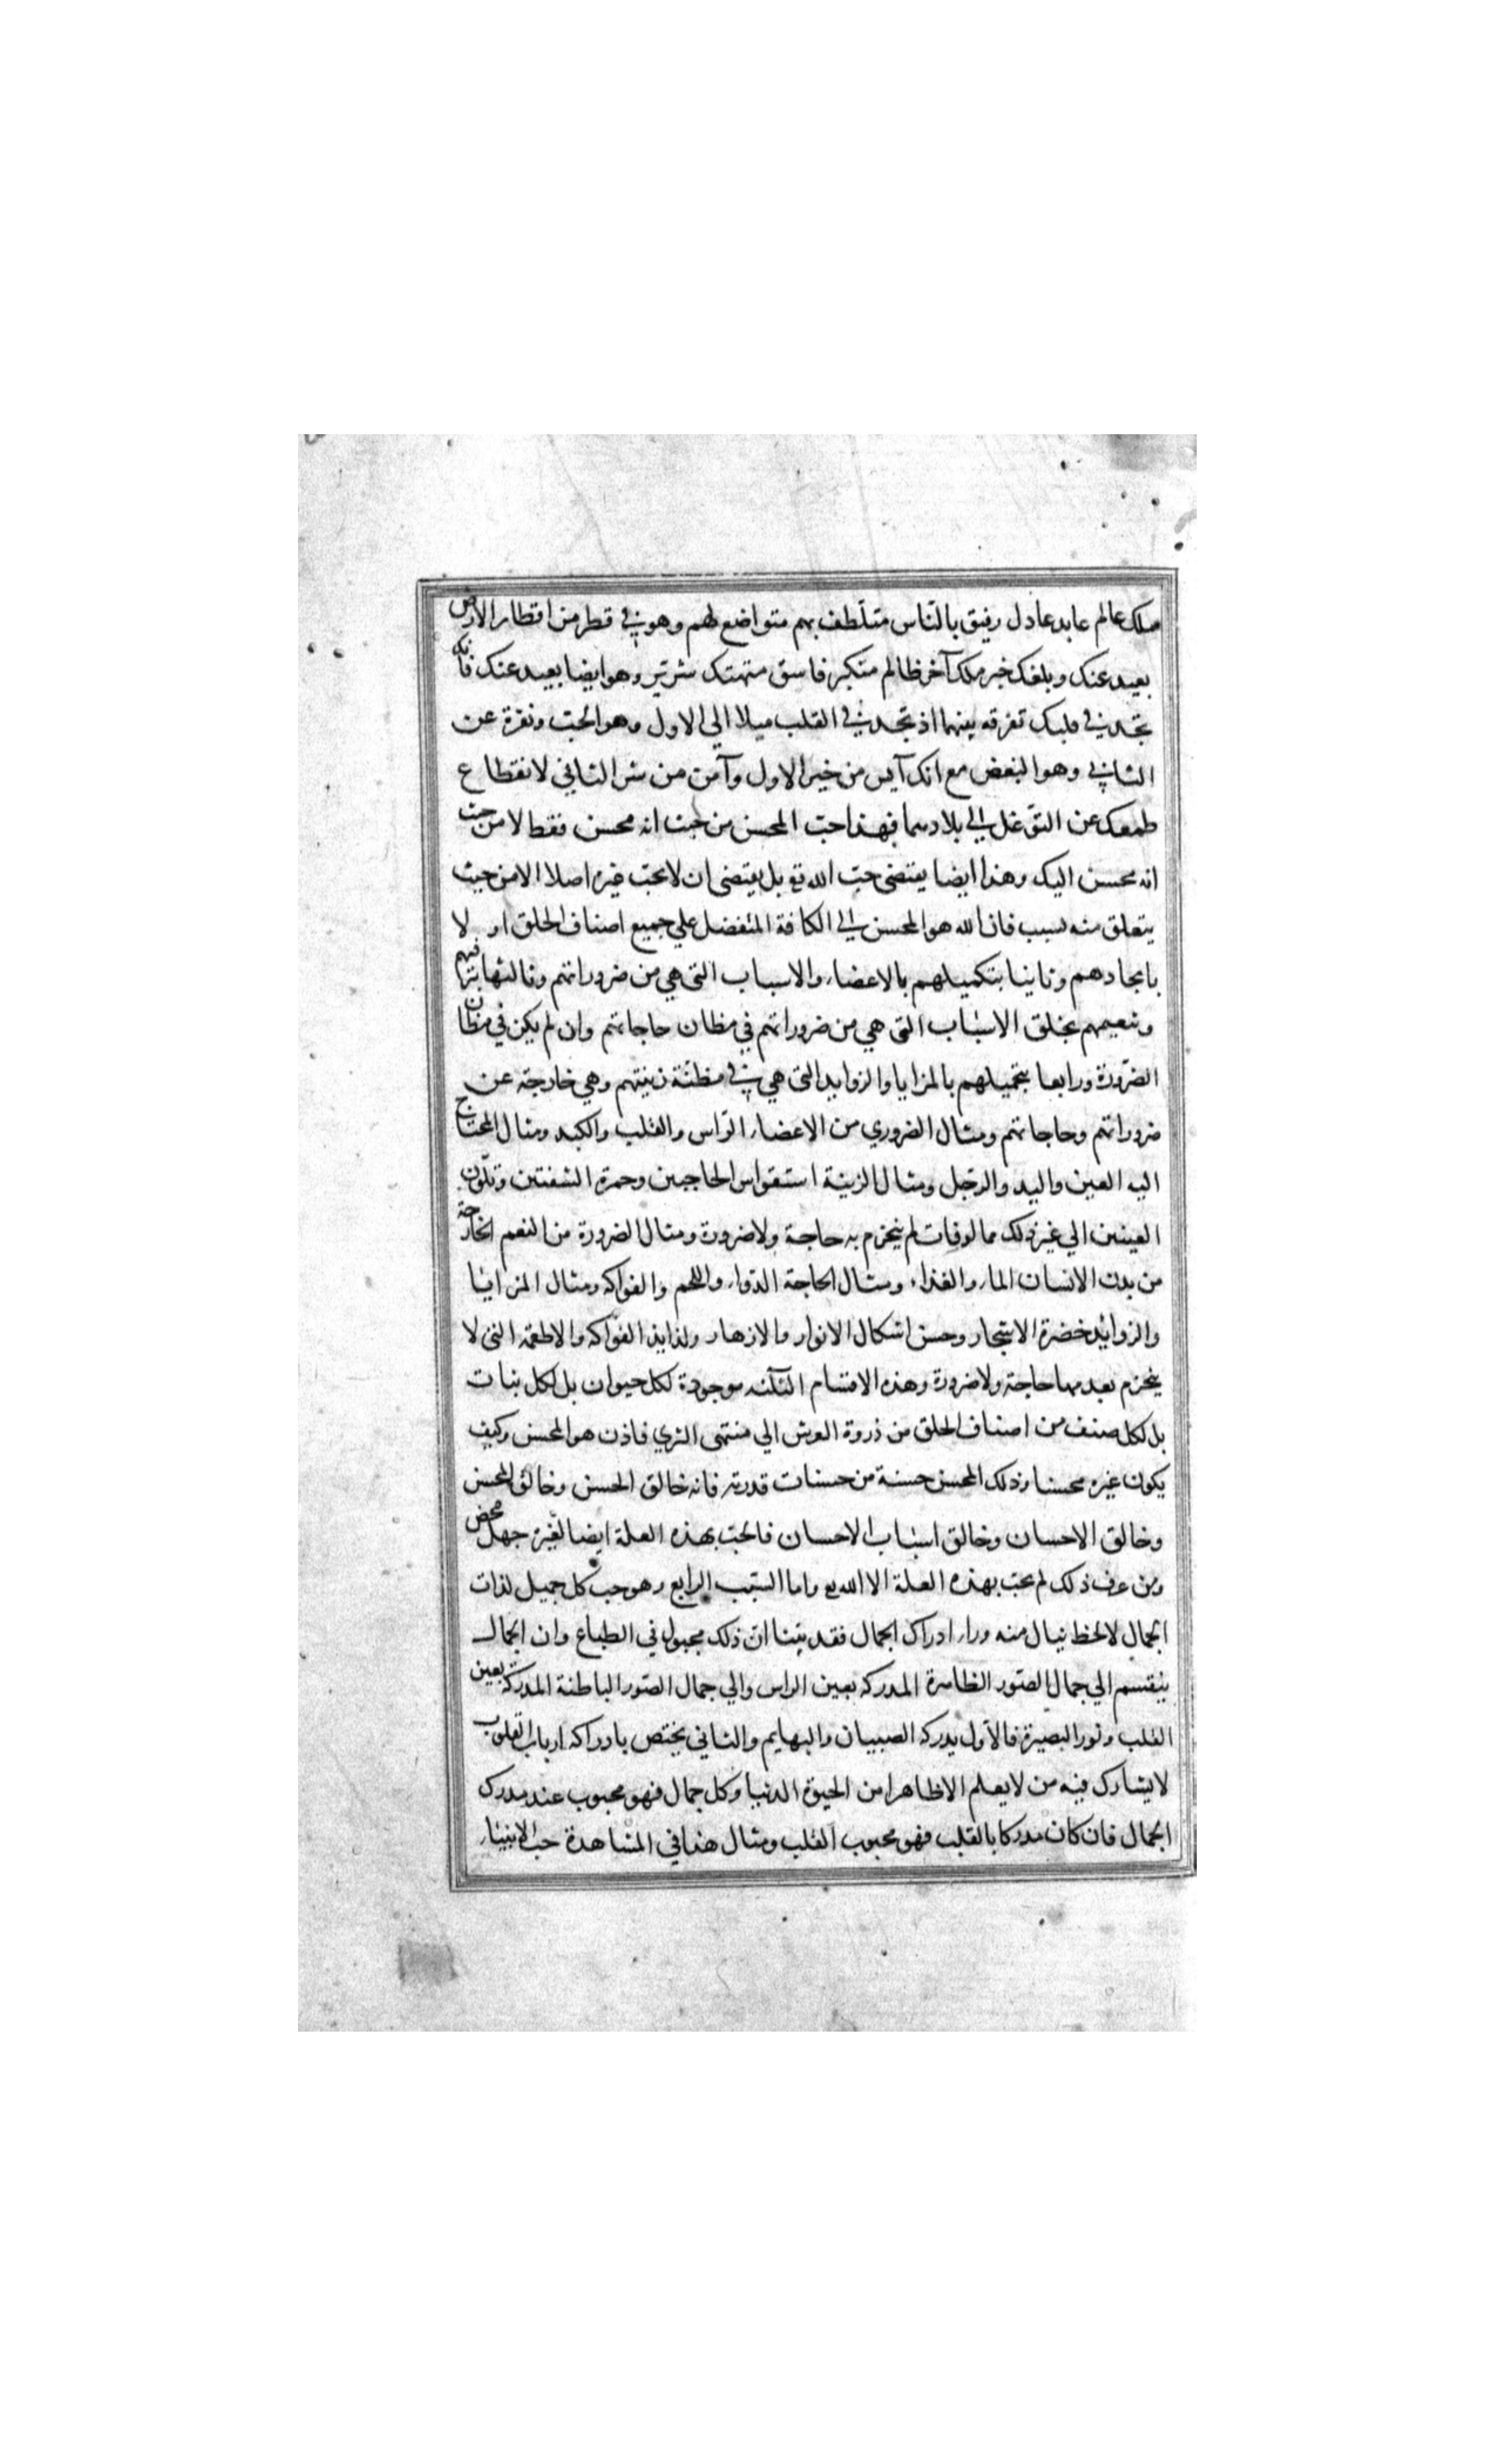 ملك عالم عابد عادل رفيق بالناس متلطف بهم متواضع لهم وهو في قطر من اقطار الارض
بعيد عنك وبلغك خبر ملك آخر ظالم متكبر فاسق متهتك شرير وهو ايضا بعيد عنك فانك
تجد في قلبك تفرقه بينهما اذ تجد في القلب ميلا الي الاول وهو الحب ونفرة عن
الثاني وهو البغض مع انك آيس من خير الاول وآمن من شر الثاني لانقطاع
طمعك عن التوغل الي بلادهما فهذا حب المحسن من حيث انه محسن فقط لا من حيث
انه محسن اليك وهذا ايضا يقتضي حب الله تع بل يقتضي ان لا يحب غيره اصلا الا من حيث
يتعلق منه بسبب فان الله هو المحسن الي الكافة المتفضل علي جميع اصناف الخلق او لا
بايجادهم وثانيا بتكميلهم بالاعضاء والاسباب التي هي من ضروراتهم وثالثا بترفيههم
وتنعيمهم بخلق الاسباب التي هي من ضروراتهم في مظان حاجاتهم وان لم يكن في مظان
الضرورة ورابعا بتجميلهم بالمزايا والزوايد التي هي في مظنة زينتهم وهي خارجة عن
ضروراتهم وحاجاتهم ومثال الضروري من الاعضاء الراس والقلب والكبد ومثال المحتاج
اليه العين واليد والرجل ومثال الزينة استقواس الحاجبين وحمرة الشفتين وتلون
العينين الي غير ذلك مما لو فات لم ينخرم به حاجة ولا ضرورة ومثال الضرورة من النعم الخارجة
من بدن الانسان الماء والغذاء ومثال الحاجة الدواء واللحم والفواكه ومثال المزايا
والزوائد خضرة الاشجار وحسن اشكال الانوار والازهار ولذايذ الفواكه والاطعمه التي لا
ينخرم بعدمها حاجة ولا ضرورة وهذه الاقسام الثلثه موجودة لكل حيوان بل لكل نبات
بل لكل صنف من اصناف الخلق من ذروة العرش الي منتهى الثري فاذن هو المحسن وكيف
يكون غيره محسنا وذلك المحسن حسنة من حسنات قدرته فانه خالق الحسن وخالق المحسن
وخالق الاحسان وخالق اسباب الاحسان فالحب بهذه العلة ايضا لغيره جهل محض
ومن عرف ذلك لم يحب بهذه العلة الا الله تع واما السبب الرابع وهو حب كل جميل لذات
الجمال لا لحظ ينال منه وراء ادراك الجمال فقد بينا ان ذلك مجبول في الطباع وان الجمال
ينقسم الي جمال الصور الظاهرة المدركه بعين الراس والي جمال الصور الباطنة المدركة بعين
القلب ونور البصيرة فالاول يدركه الصبيان والبهايم والثاني يختص بادراكه ارباب القلوب
لا يشارك فيه من لا يعلم الا ظاهرا من الحيوة الدنيا وكل جمال فهو محبوب عند مدرك
الجمال فان كان مدركا بالقلب فهو محبوب القلب ومثال هذا في المشاهدة حب الانبياء